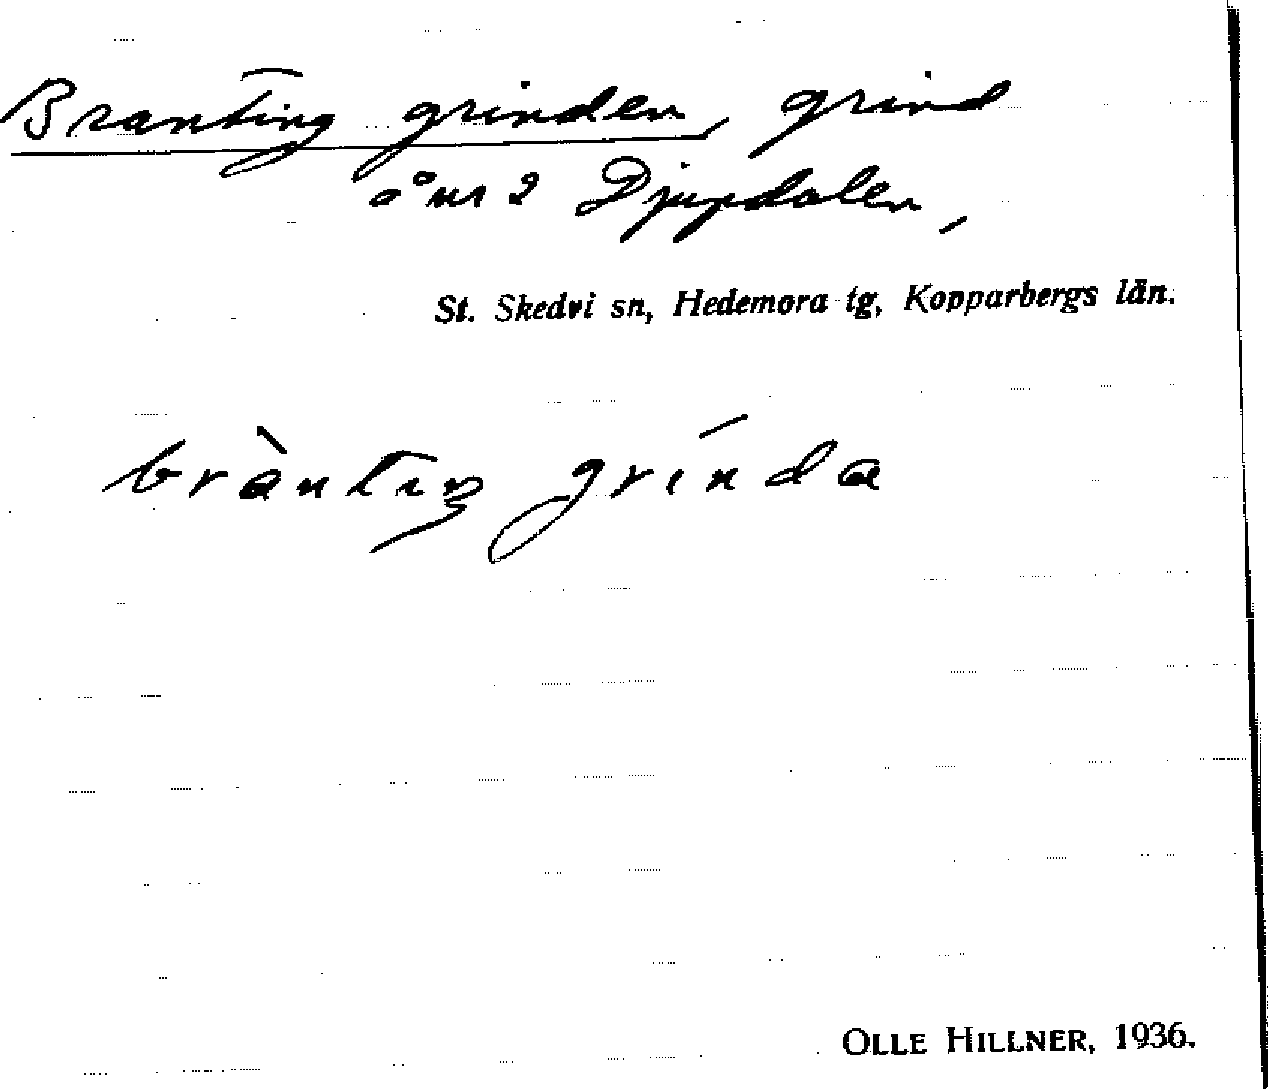 Branting grinden, grind
å nr 2 Djupdalen,
St. Skedvi sn, Hedemora tg, Kopparbergs län.
bràntıŋ grínda
OLLE HILLNER, 1936.